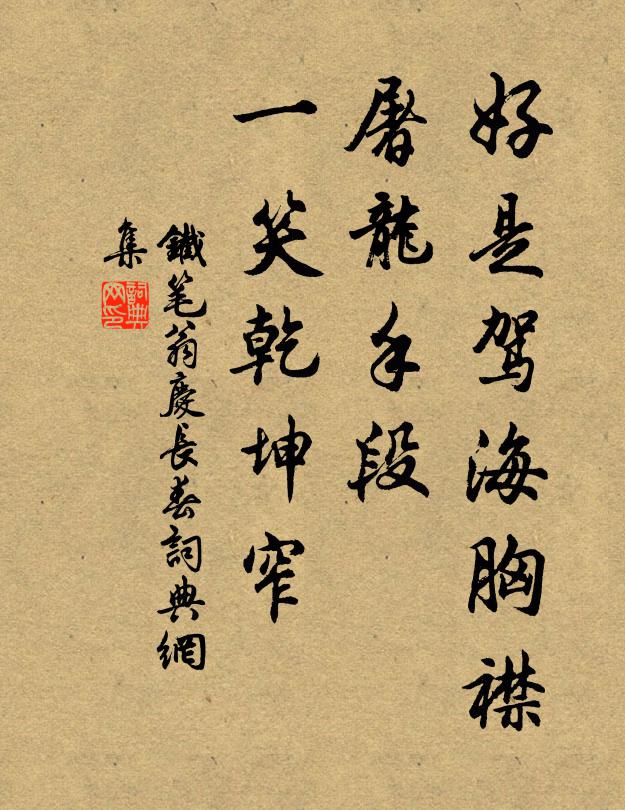 好是駕海胸襟
屠龍手段
一笑乾坤窄
鐵笔翁慶長春詞典網
集
詞典
网印